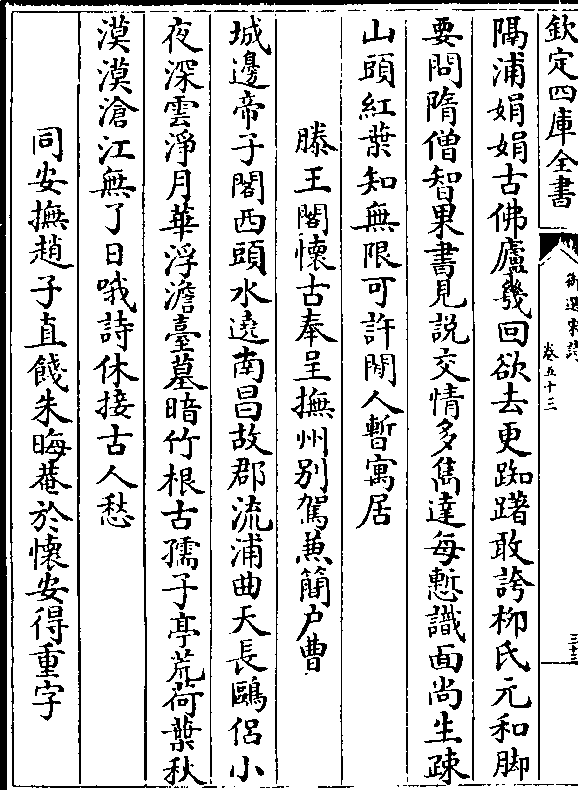 欽定四庫全書
御選宋詩
卷五十三
三十三
隅浦娟娟古佛廬幾回欲去更踟躇敢誇栁氏元和脚
要問隋僧智果書見説交情多雋達每慙識面尚生疎
山頭紅葉知無限可許閒人暫寓居
滕王閣懷古奉呈撫州别駕兼簡户曹
城邊帝子閣西頭水遶南昌故郡流浦曲天長鷗侣小
夜深雲淨月華浮澹臺墓暗竹根古孺子亭荒荷葉秋
漠漠滄江無了日哦詩休接古人愁
同安撫趙子直餞朱晦菴於懷安得重字